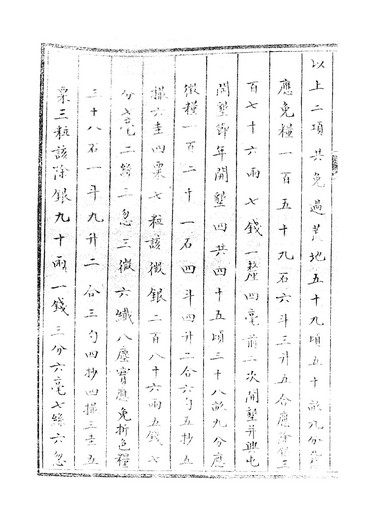 以上二項共免過荒地五十九頃五十畝九分
應免糧一百五十九石六斗三升五合應除銀三
百七十六兩七錢一釐四毫前二次開墾并興屯
開墾節年開墾四共四十五頃三十八畝九分應
徵糧一百二十一石四斗四升二合六勺五抄五
撮六圭四粟七粒該徵銀二百八十六兩五錢七
分六毫二絲二忽三微六纖八塵實應免折色糧
三十八石一斗九升二合三勺四抄四撮三圭五
粟三粒該除銀九十兩一錢三分六毫七絲六忽